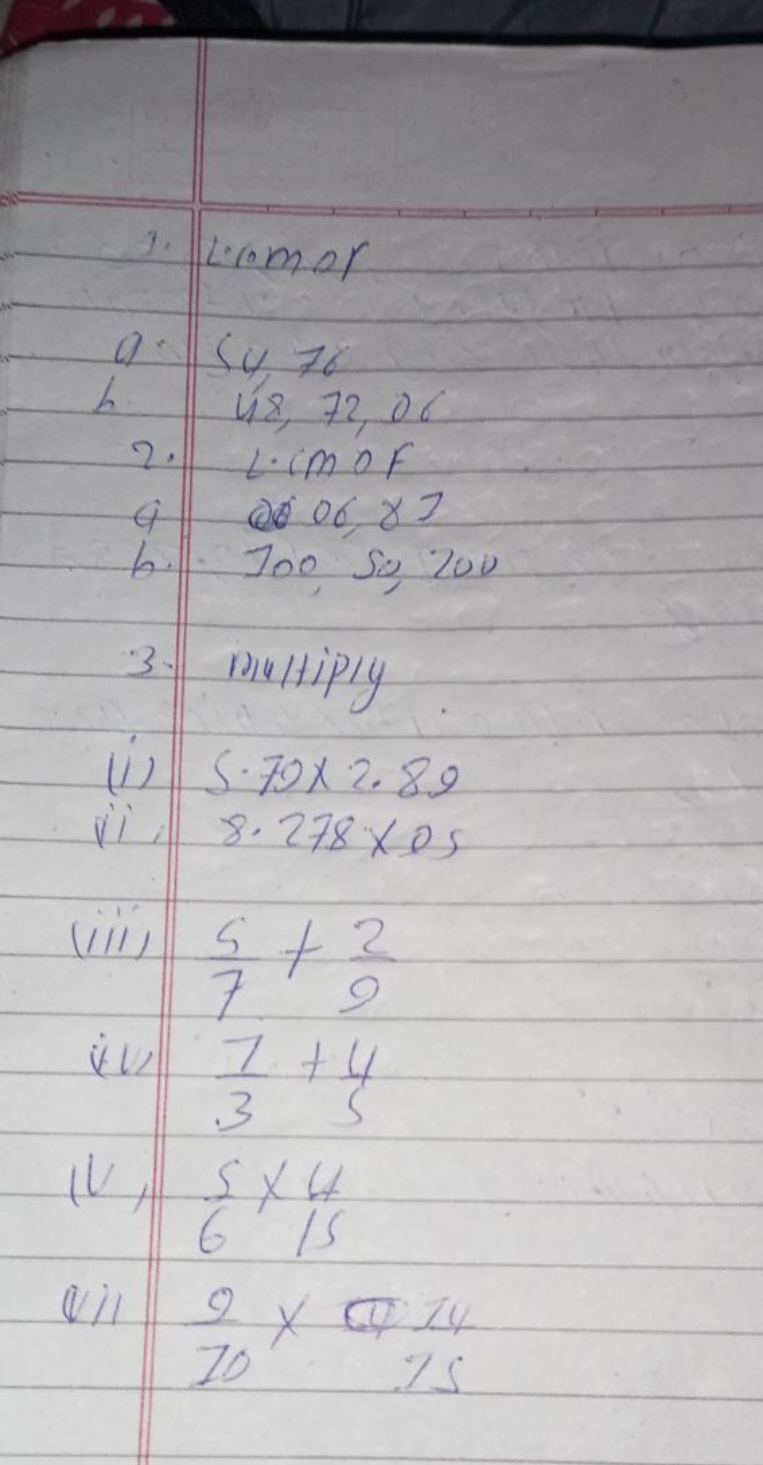 1. L.C.M OF
a. 54, 76
b 48, 72, 06
2. L.CM OF
a 06, 87
b. 100, 50, 200
3. multiply
(i) 5.79 X 2.89
ii, 8.278 X 05
(iii) 5/7 + 2/9
iv, 1/3 + 4/5
iv, 5/6 X 4/15
vii 9/10 X 14/15